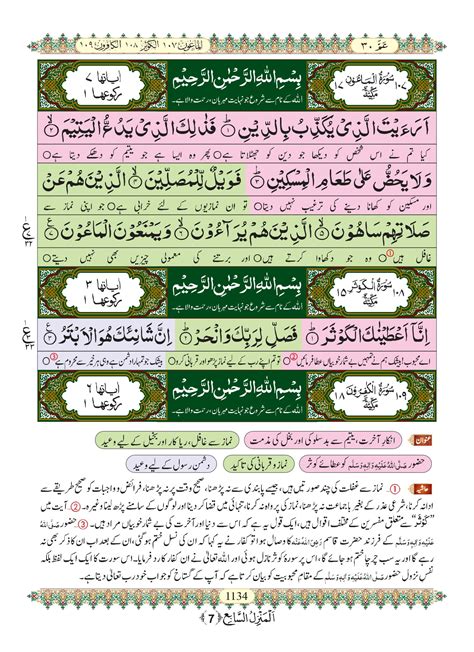 عَمَّ ٣٠
الماعون ١٠٧ الکوثر ١٠٨ الکافرون ١٠٩
١٠٧ سُوْرَةُ الْمَاعُوْن مَكِّيَّةٌ ١٧
بِسْمِ اللّٰهِ الرَّحْمٰنِ الرَّحِيْمِ
اللہ کے نام سے شروع جو نہایت مہربان، رحمت والا ہے۔
اٰیاتها ٧
رکوعها ١
اَرَءَيْتَ الَّذِيْ يُكَذِّبُ بِالدِّيْنِ ؕ﴿۱﴾ فَذٰلِكَ الَّذِيْ يَدُعُّ الْيَتِيْمَ ۙ﴿۲﴾
کیا تم نے اس شخص کو دیکھا جو دین کو جھٹلاتا ہے ○ پھر وہ ایسا ہے جو یتیم کو دھکے دیتا ہے ○
وَ لَا يَحُضُّ عَلٰى طَعَامِ الْمِسْكِيْنِ ؕ﴿۳﴾ فَوَيْلٌ لِّلْمُصَلِّيْنَ ۙ﴿۴﴾ الَّذِيْنَ هُمْ عَنْ
اور مسکین کو کھانا دینے کی ترغیب نہیں دیتا ○ تو ان نمازیوں کے لئے خرابی ہے ○ جو اپنی نماز سے
صَلَاتِهِمْ سَاهُوْنَ ۙ﴿۵﴾ الَّذِيْنَ هُمْ يُرَآءُوْنَ ۙ﴿۶﴾ وَ يَمْنَعُوْنَ الْمَاعُوْنَ ﴿۷﴾
غافل ہیں ① ○ وہ جو دکھاوا کرتے ہیں ○ اور برتنے کی معمولی چیزیں بھی نہیں دیتے ○
١٠٨ سُوْرَةُ الْكَوْثَر مَكِّيَّةٌ ١٥
بِسْمِ اللّٰهِ الرَّحْمٰنِ الرَّحِيْمِ
اللہ کے نام سے شروع جو نہایت مہربان، رحمت والا ہے۔
اٰیاتها ٣
رکوعها ١
اِنَّاۤ اَعْطَيْنٰكَ الْكَوْثَرَ ؕ﴿۱﴾ فَصَلِّ لِرَبِّكَ وَ انْحَرْ ؕ﴿۲﴾ اِنَّ شَانِئَكَ هُوَ الْاَبْتَرُ ﴿۳﴾
اے محبوب! بیشک ہم نے تمہیں بے شمار خوبیاں عطا فرمائیں ② ○ تو تم اپنے رب کے لئے نماز پڑھو اور قربانی کرو ○ بیشک جو تمہارا دشمن ہے وہی ہر خیر سے محروم ہے ③ ○
١٠٩ سُوْرَةُ الْكٰفِرُوْن مَكِّيَّةٌ ١٨
بِسْمِ اللّٰهِ الرَّحْمٰنِ الرَّحِيْمِ
اللہ کے نام سے شروع جو نہایت مہربان، رحمت والا ہے۔
اٰیاتها ٦
رکوعها ١
عنوان انکارِ آخرت، یتیم سے بدسلوکی اور بخل کی مذمت نماز سے غافل، ریاکار اور بخیل کے لیے وعید
حضور صَلَّی اللّٰہُ عَلَیْہِ وَاٰلِہٖ وَسَلَّم کو عطائے کوثر نماز و قربانی کی تاکید دشمنِ رسول کے لیے وعید
حاشیہ ①۔ نماز سے غفلت کی چند صورتیں ہیں، جیسے پابندی سے نہ پڑھنا، صحیح وقت پر نہ پڑھنا، فرائض و واجبات کو صحیح طریقے سے
ادا نہ کرنا، شرعی عذر کے بغیر باجماعت نہ پڑھنا، نماز کی پرواہ نہ کرنا، تنہائی میں قضا کر دینا اور لوگوں کے سامنے پڑھ لینا وغیرہ۔ ②۔ آیت میں
"کَوْثَر" سے متعلق مفسرین کے مختلف اقوال ہیں، ایک قول یہ ہے کہ اس سے دنیا اور آخرت کی بے شمار خوبیاں مراد ہیں۔ ③۔ حضور صَلَّی اللّٰہُ
عَلَیْہِ وَاٰلِہٖ وَسَلَّم کے فرزند حضرت قاسم رَضِیَ اللّٰہُ عَنْہُ کا وصال ہوا تو کفار نے یہ کہا کہ ان کی نسل ختم ہو گئی، ان کے بعد اب ان کا ذکر بھی نہ
رہے گا اور یہ سب چرچا ختم ہو جائے گا، اس پر سورۂ کوثر نازل ہوئی اور اللہ تعالیٰ نے ان کفار کا رد فرمایا۔ اس سورت کا ایک ایک لفظ بلکہ
نفسِ نزول حضور صَلَّی اللّٰہُ عَلَیْہِ وَاٰلِہٖ وَسَلَّم کے مقامِ محبوبیت کو بیان کرتا ہے کہ آپ کے گستاخ کو جواب خود رب تعالیٰ دیتا ہے۔
1134
اَلْمَنْزِلُ السَّابِع ﴿7﴾